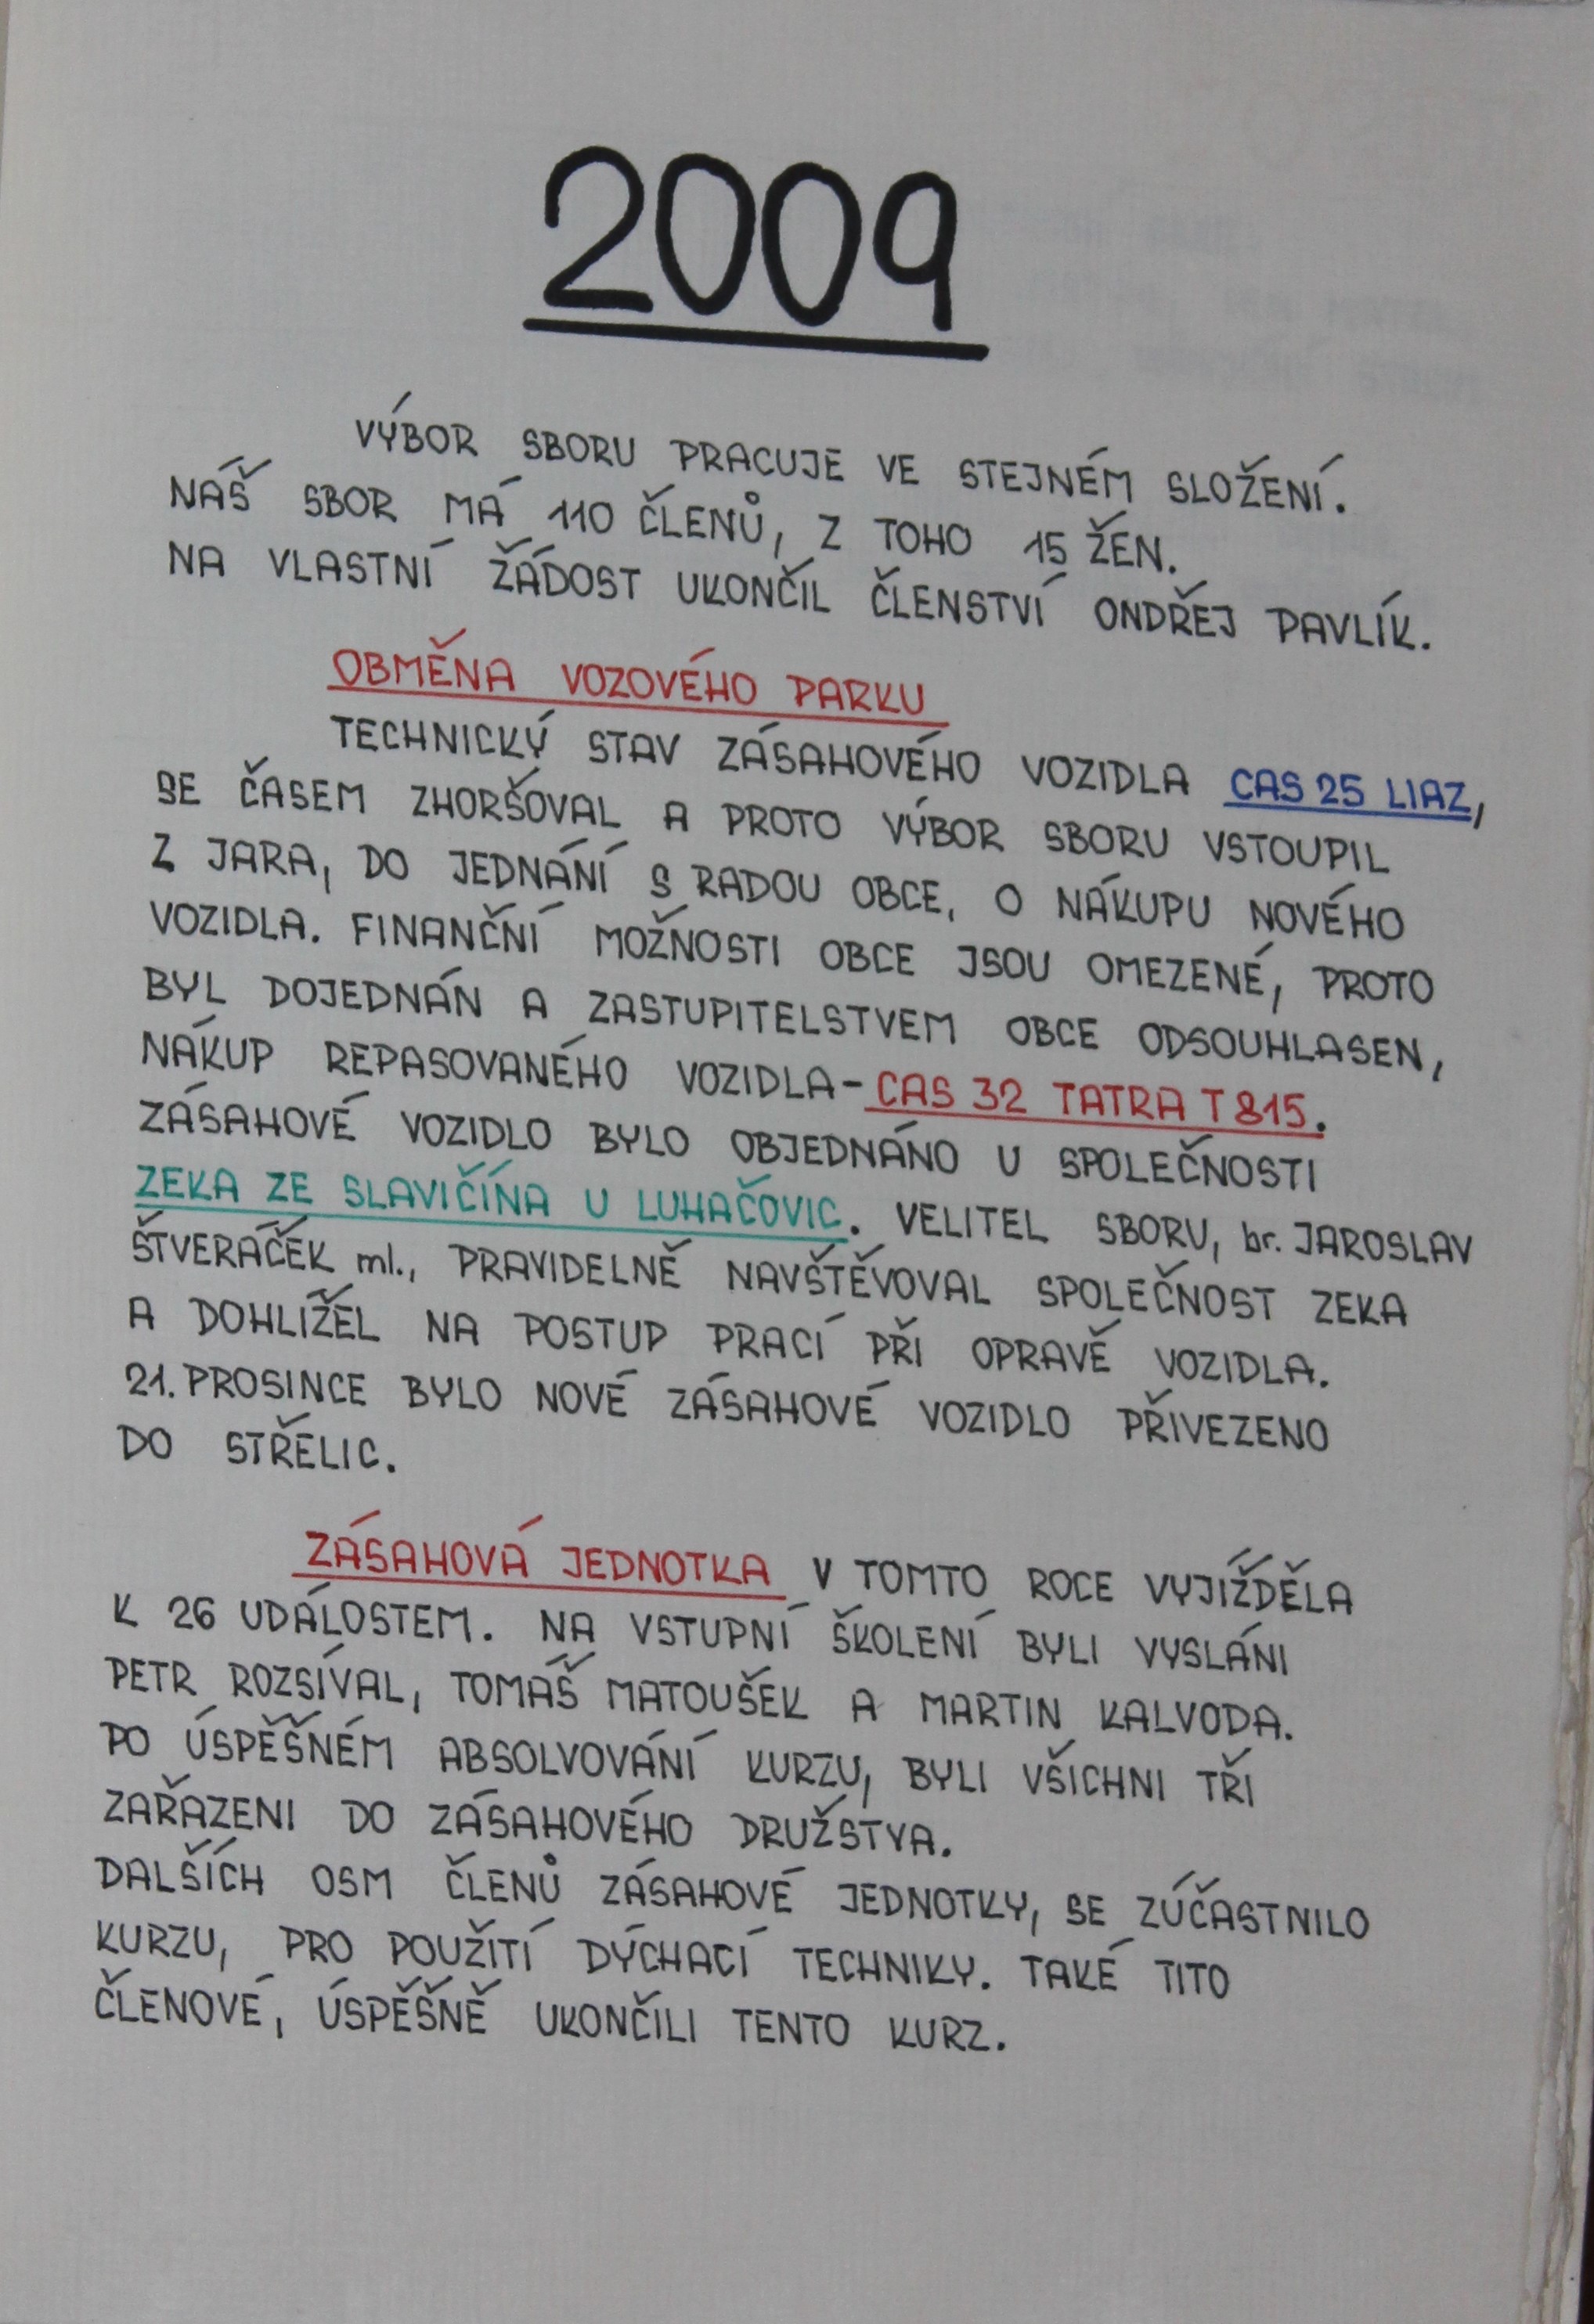 2009
VÝBOR SBORU PRACUJE VE STEJNÉM SLOŽENÍ.
NÁŠ SBOR MÁ 110 ČLENŮ, Z TOHO 15 ŽEN.
NA VLASTNÍ ŽÁDOST UKONČIL ČLENSTVÍ ONDŘEJ PAVLÍK.
OBMĚNA VOZOVÉHO PARKU
TECHNICKÝ STAV ZÁSAHOVÉHO VOZIDLA CAS 25 LIAZ,
SE ČASEM ZHORŠOVAL A PROTO VÝBOR SBORU VSTOUPIL
Z JARA, DO JEDNÁNÍ S RADOU OBCE, O NÁKUPU NOVÉHO
VOZIDLA. FINANČNÍ MOŽNOSTI OBCE JSOU OMEZENÉ, PROTO
BYL DOJEDNÁN A ZASTUPITELSTVEM OBCE ODSOUHLASEN,
NÁKUP REPASOVANÉHO VOZIDLA - CAS 32 TATRA T 815.
ZÁSAHOVÉ VOZIDLO BYLO OBJEDNÁNO U SPOLEČNOSTI
ZEKA ZE SLAVIČÍNA U LUHAČOVIC. VELITEL SBORU, br. JAROSLAV
ŠTVERÁČEK ml., PRAVIDELNĚ NAVŠTĚVOVAL SPOLEČNOST ZEKA
A DOHLÍŽEL NA POSTUP PRACÍ PŘI OPRAVĚ VOZIDLA.
21. PROSINCE BYLO NOVÉ ZÁSAHOVÉ VOZIDLO PŘIVEZENO
DO STŘELIC.
ZÁSAHOVÁ JEDNOTKA V TOMTO ROCE VYJÍŽDĚLA
K 26 UDÁLOSTEM. NA VSTUPNÍ ŠKOLENÍ BYLI VYSLÁNI
PETR ROZSÍVAL, TOMÁŠ MATOUŠEK A MARTIN KALVODA.
PO ÚSPĚŠNÉM ABSOLVOVÁNÍ KURZU, BYLI VŠICHNI TŘI
ZAŘAZENI DO ZÁSAHOVÉHO DRUŽSTVA.
DALŠÍCH OSM ČLENŮ ZÁSAHOVÉ JEDNOTKY, SE ZÚČASTNILO
KURZU, PRO POUŽITÍ DÝCHACÍ TECHNIKY. TAKÉ TITO
ČLENOVÉ, ÚSPĚŠNĚ UKONČILI TENTO KURZ.